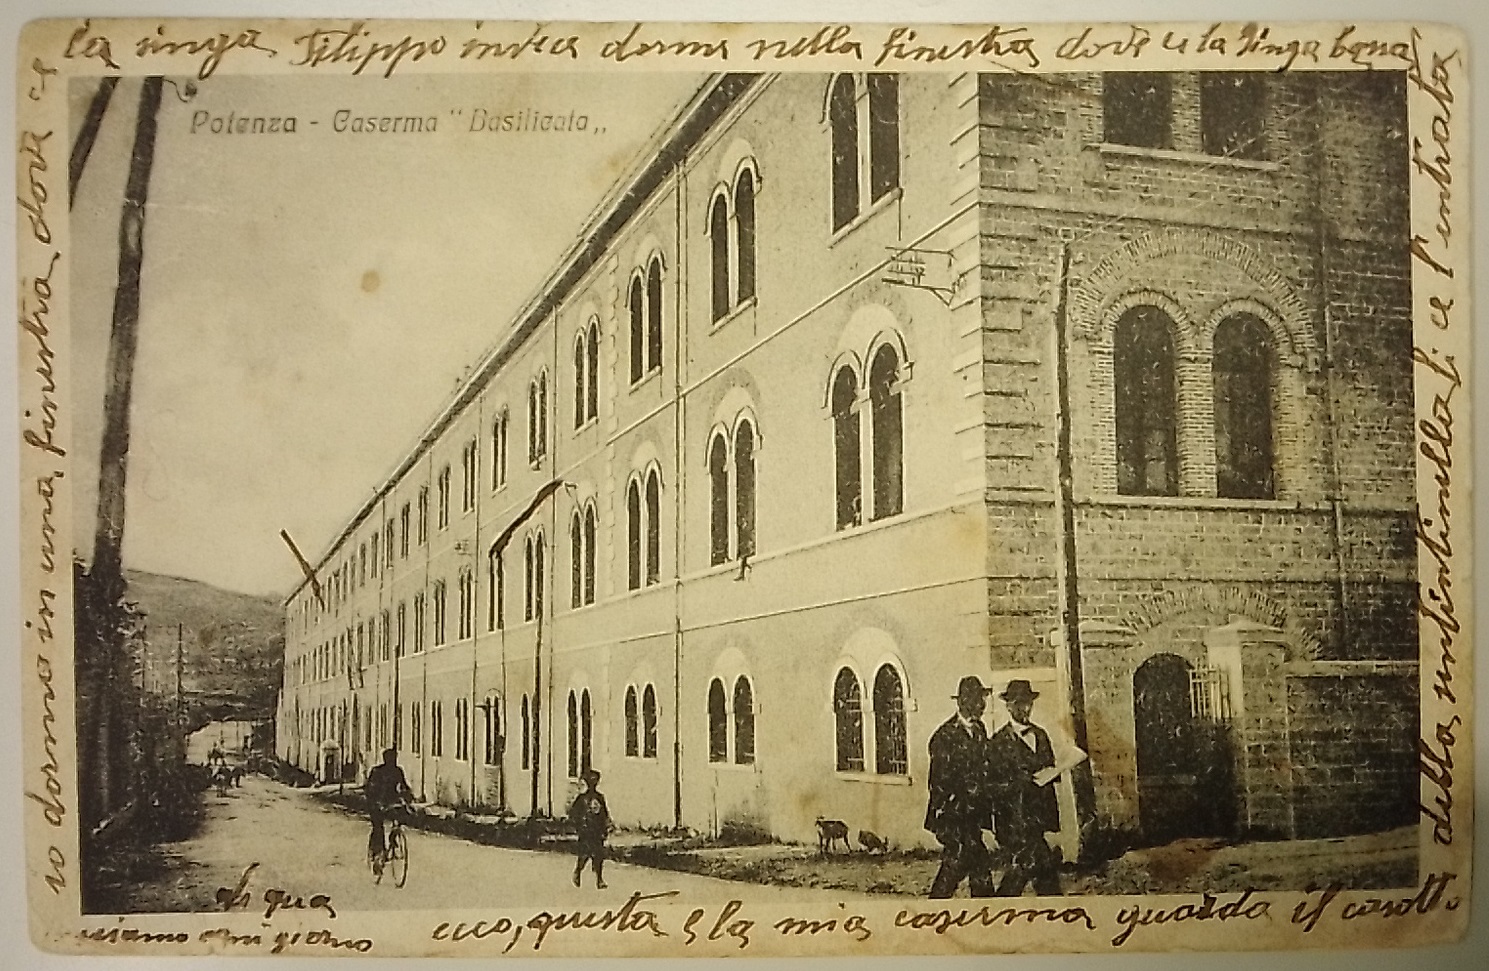 Potenza - Caserma "Basilicata„
la singa Filippo invece dorme nella finestra dove ce la singa
io dormo in una finestra dove ce
di qua
usiamo ogni giorno
ecco, questa e la mia caserma guarda il casotto
della sentintinella li ce l'entrata